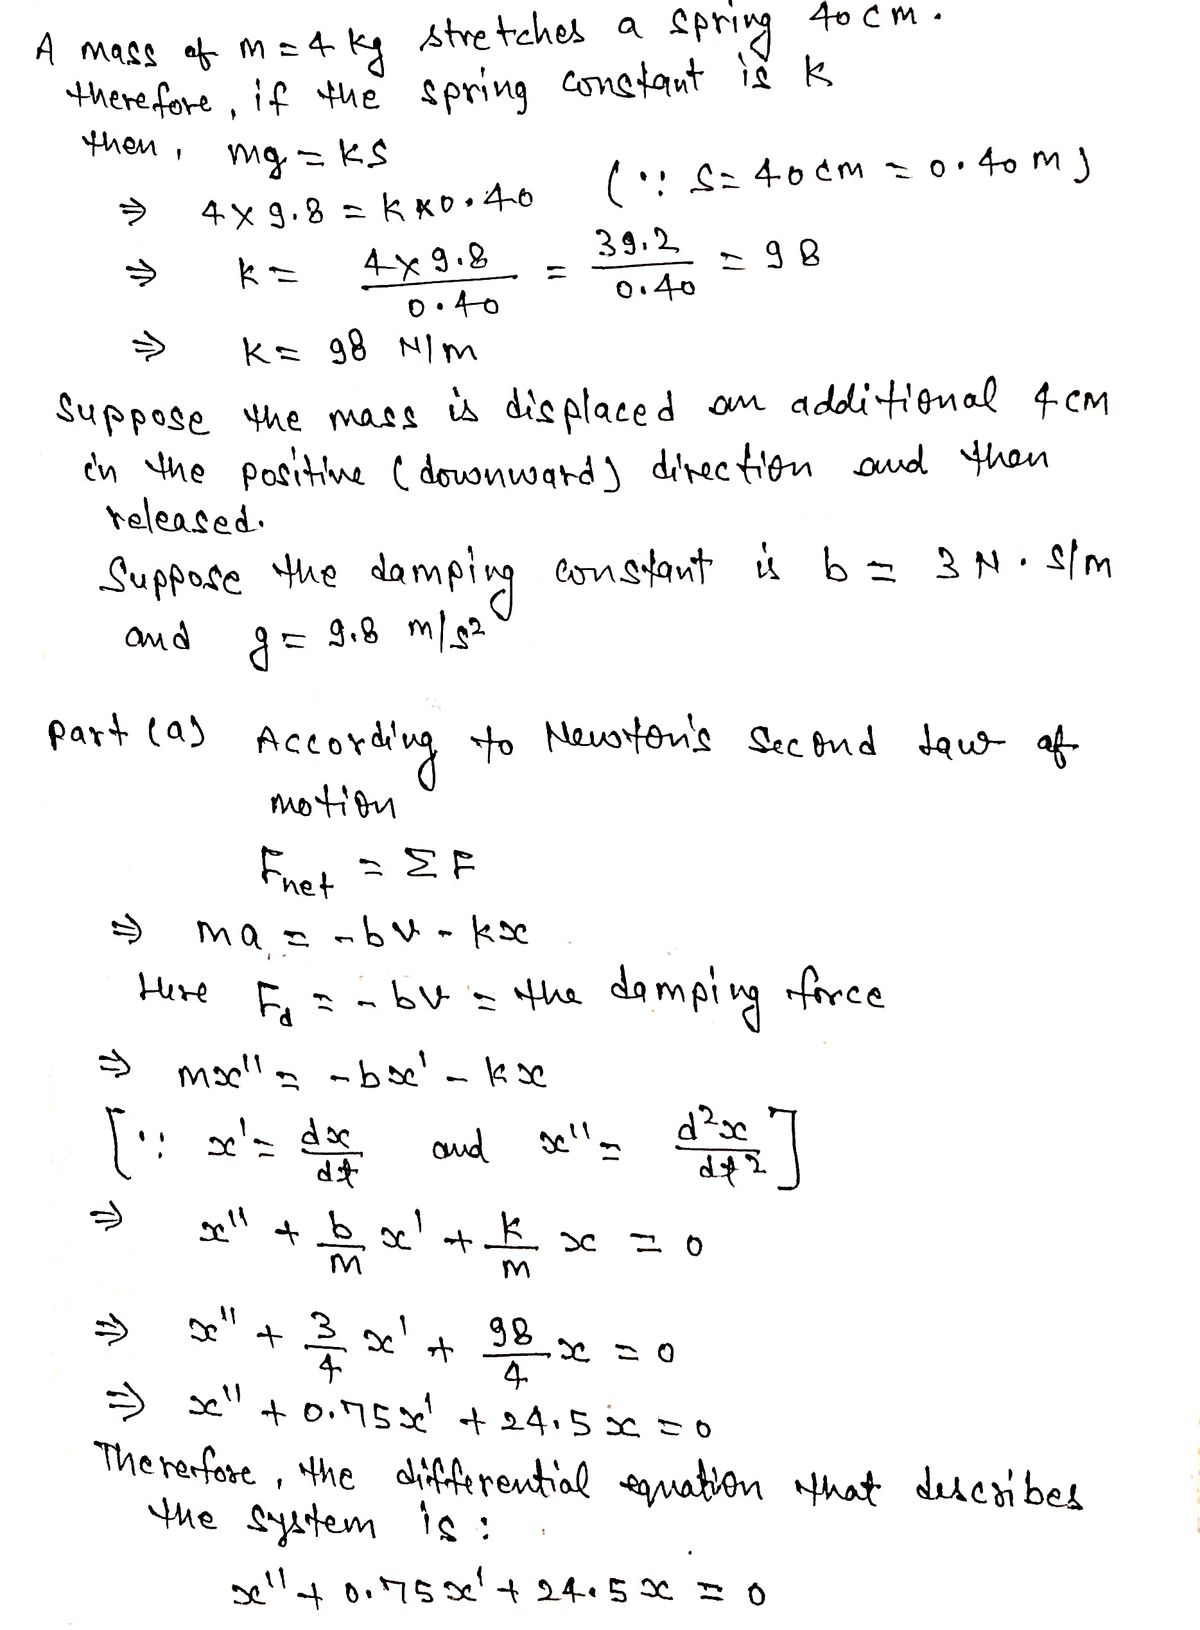 A mass of m = 4 kg stretches a spring 40 cm.
therefore, if the spring constant is k
then, mg = ks
⇒ 4 × 9.8 = k × 0.40 (∵ s = 40 cm = 0.40 m)
⇒ k = (4 × 9.8)/0.40 = 39.2/0.40 = 98
⇒ k = 98 N/m
Suppose the mass is displaced an additional 4 cm
in the positive (downward) direction and then
released.
Suppose the damping constant is b = 3 N . s/m
and g = 9.8 m/s²
part (a) According to Newton's Second Law of
motion
F_net = ΣF
⇒ ma = -bv - kx
Here F_d = -bv = the damping force
⇒ mx'' = -bx' - kx
[∵ x' = dx/dt and x'' = d²x/dt²]
⇒ x'' + b/m x' + k/m x = 0
⇒ x'' + 3/4 x' + 98/4 x = 0
⇒ x'' + 0.75x' + 24.5x = 0
Therefore, the differential equation that describes
the system is :
x'' + 0.75x' + 24.5x = 0